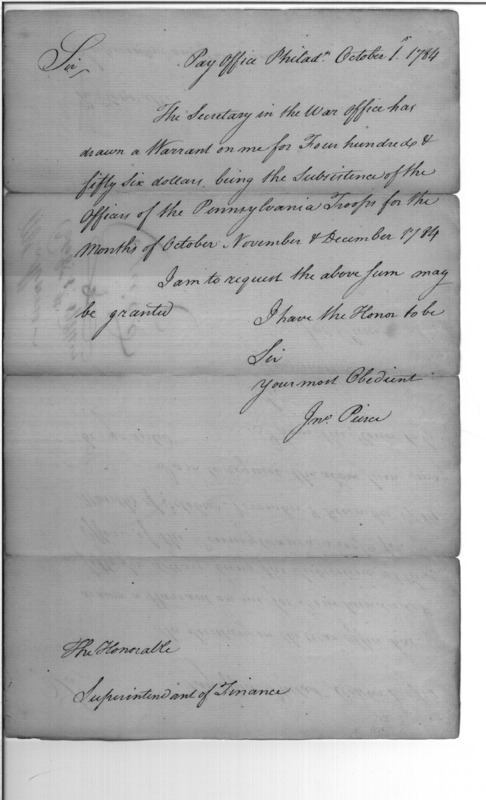 Sir
Pay Office Philad.ª October 1.st 1784
The Secretary in the War Office has
drawn a Warrant on me for Four hundred &
fifty Six dollars, being the Subsistence of the
Officers of the Pennsylvania Troops for the
Months of October November & December 1784
I am to request the above Sum may
be granted
I have the Honor to be
Sir
Your most Obedient
Jno. Pierce
The Honorable
Superintendant of Finance